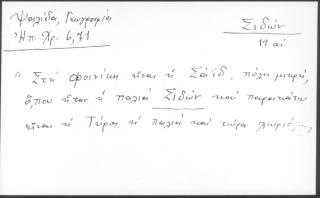 Ψαλίδα, Γεωγραφία
Ἠπ. Χρ. 6,71
Σιδών
19 αἰ
"Στή φοινίκη εἶναι ἡ Σάϊδ, πόλη μικρή,
ὅπου ἦταν ἡ παλιά Σιδών καί παρακάτω
εἶναι ἡ Τύρος ἡ παλιά καί τώρα χωριό,...,